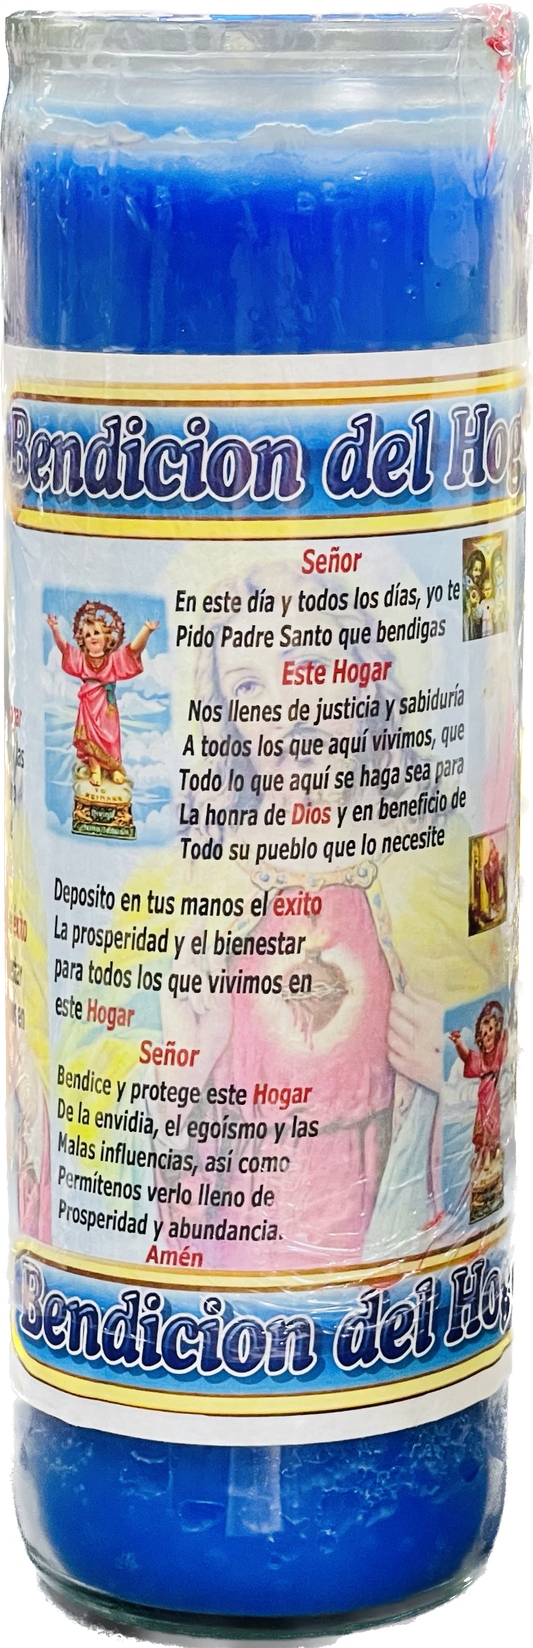 Bendicion del Hog
Señor
En este día y todos los días, yo te
Pido Padre Santo que bendigas
Este Hogar
Nos llenes de justicia y sabiduría
A todos los que aquí vivimos, que
Todo lo que aquí se haga sea para
La honra de Dios y en beneficio de
Todo su pueblo que lo necesite
Deposito en tus manos el éxito
La prosperidad y el bienestar
para todos los que vivimos en
este Hogar
Señor
Bendice y protege este Hogar
De la envidia, el egoísmo y las
Malas influencias, así como
Permítenos verlo lleno de
Prosperidad y abundancia.
Amén
Bendicion del Hog